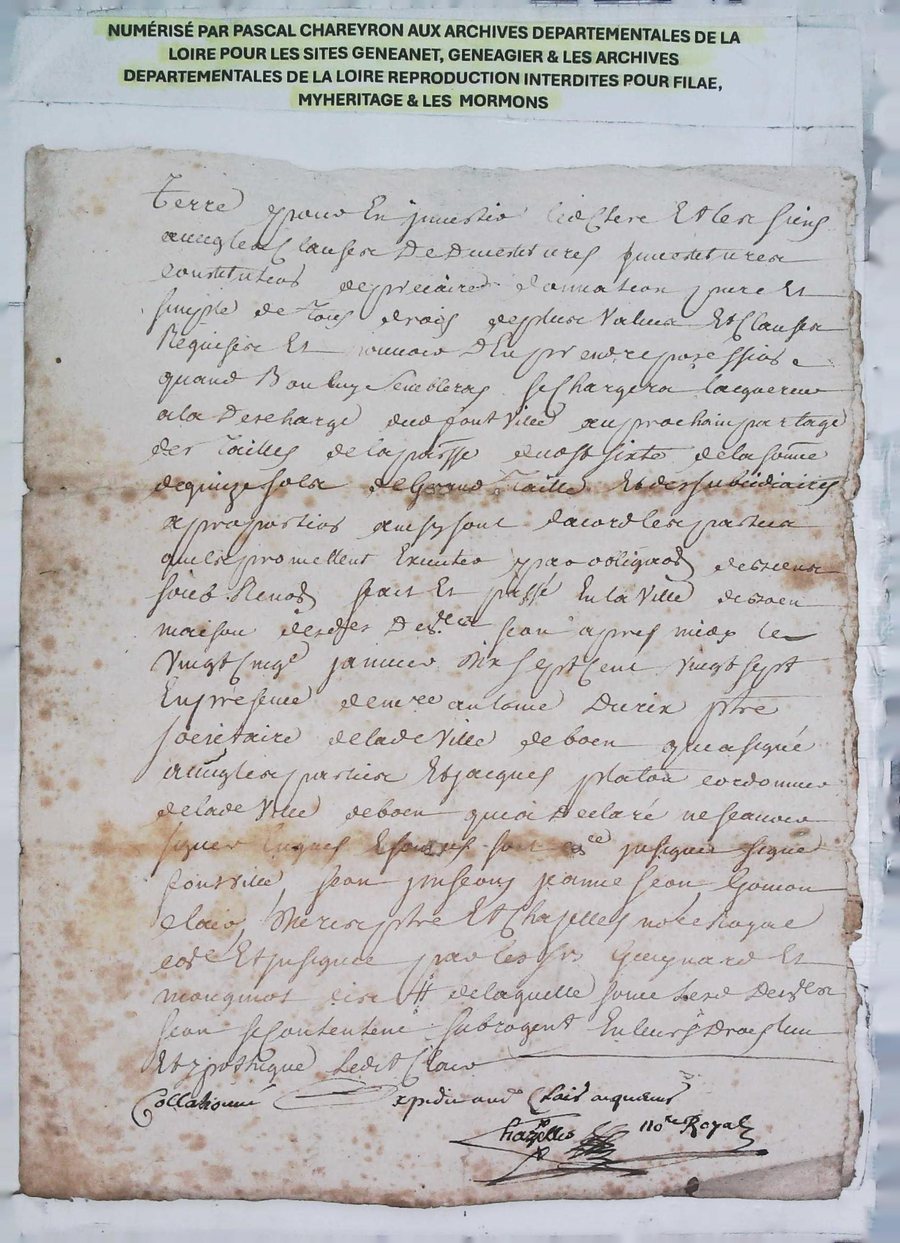 NUMÉRISÉ PAR PASCAL CHAREYRON AUX ARCHIVES DEPARTEMENTALES DE LA
LOIRE POUR LES SITES GENEANET, GENEAGIER & LES ARCHIVES
DEPARTEMENTALES DE LA LOIRE REPRODUCTION INTERDITES POUR FILAE,
MYHERITAGE & LES MORMONS
terre pour En Et les siens
avecq les Clauses De Devestitures Investitures
constitution de precaire donnation pure Et
simple de Tous droits de plus values Et Clauses
Requises Et D'En prendre possession
quand Bon luy Semblera se Chargera lacquereur
a la Descharge dud fontville au prochain partage
des Tailles de la parsse de st sixte de la somme
de quinze sols de Grand Taille Et des subcidiaires
a proportion ainsy sont dacord les parties
quils promettent Executer par obligaon de biens
soub Renon fait Et passé En la Ville de boen
maison desdes Delles Jean apres midy le
Vingt Cinqe janvier Mix sept Cent vingt sept
En présence de mre antoine Durix ptre
societaire de lade Ville de boen qui a signé
avecq les parties Et jacques platon cordonnier
de lade Ville de boen qui a Declaré ne scavoir
signer Enquis
fontville, Jean jeanne Jean
Clair, ptre Et Chazelles note Royal
Et par les srs Et
de laquelle somme lesd Delles
Jean se Contentent subrogent En leurs Droits
Et ypothèque Ledit Clair
Collationné Expedié aud Clair acquereur
Chazelles nore Royal